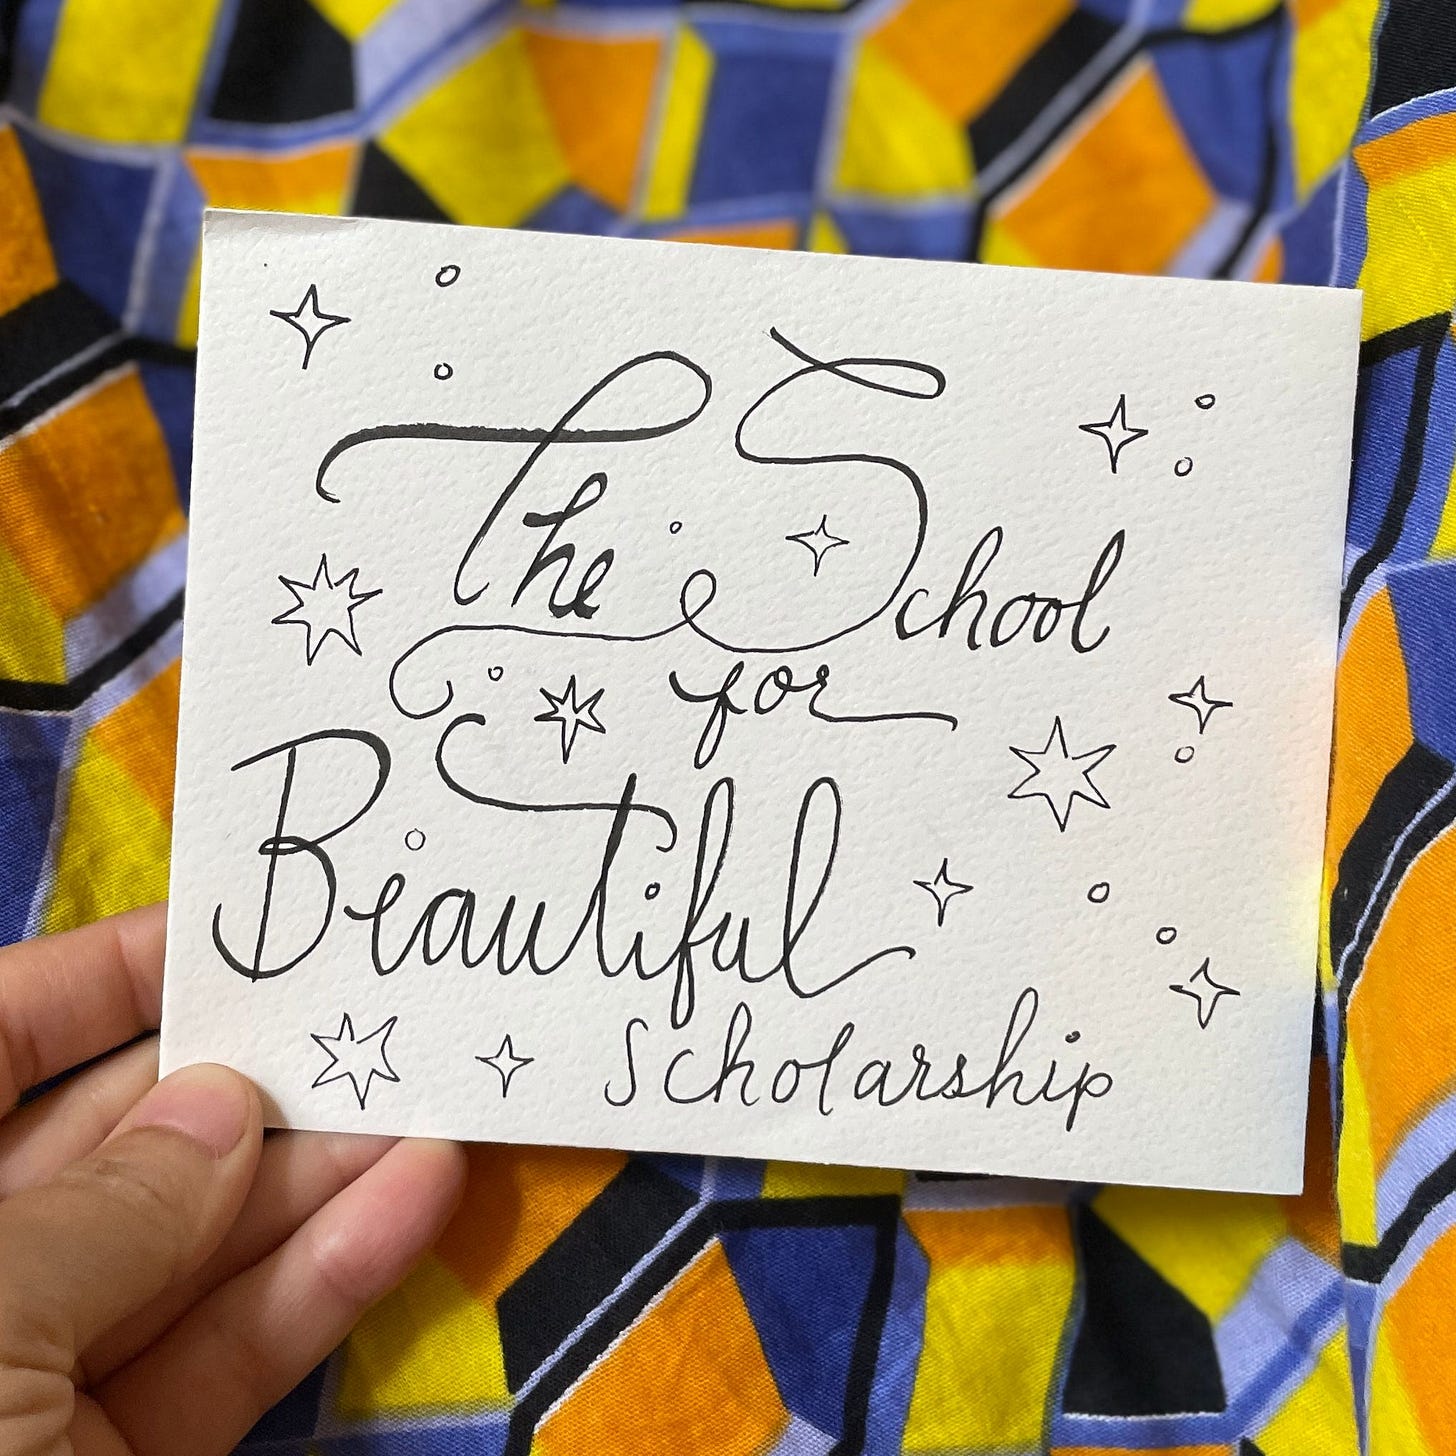 The School
for
Beautiful
Scholarship